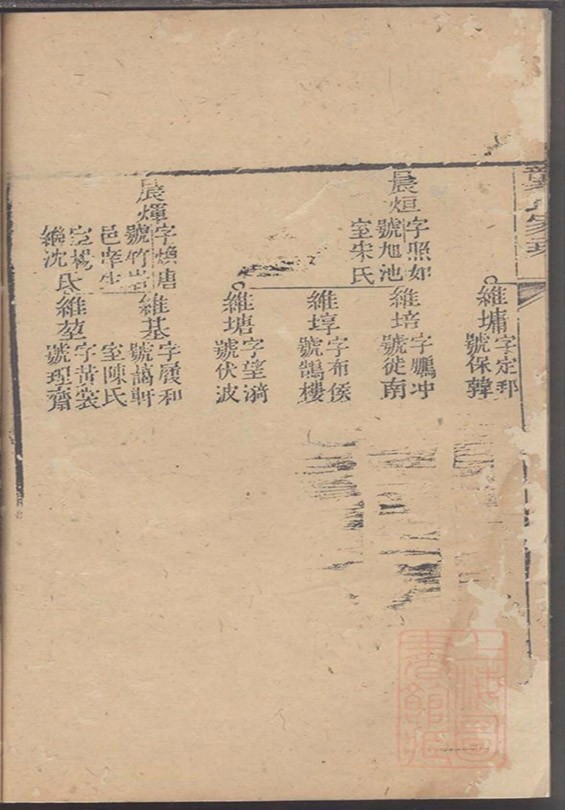 維墉
字定邦
號保韓
晨烜
字照如
號旭池
室宋氏
維培
字鵬冲
號徙南
維㙑
字布侯
號鵠樓
維塘
字望漪
號伏波
晨煇
字燦唐
號竹岩
邑庠生
室楊
繼沈氏
維基
字履和
號藹軒
室陳氏
維堃
字黃裳
號理齋